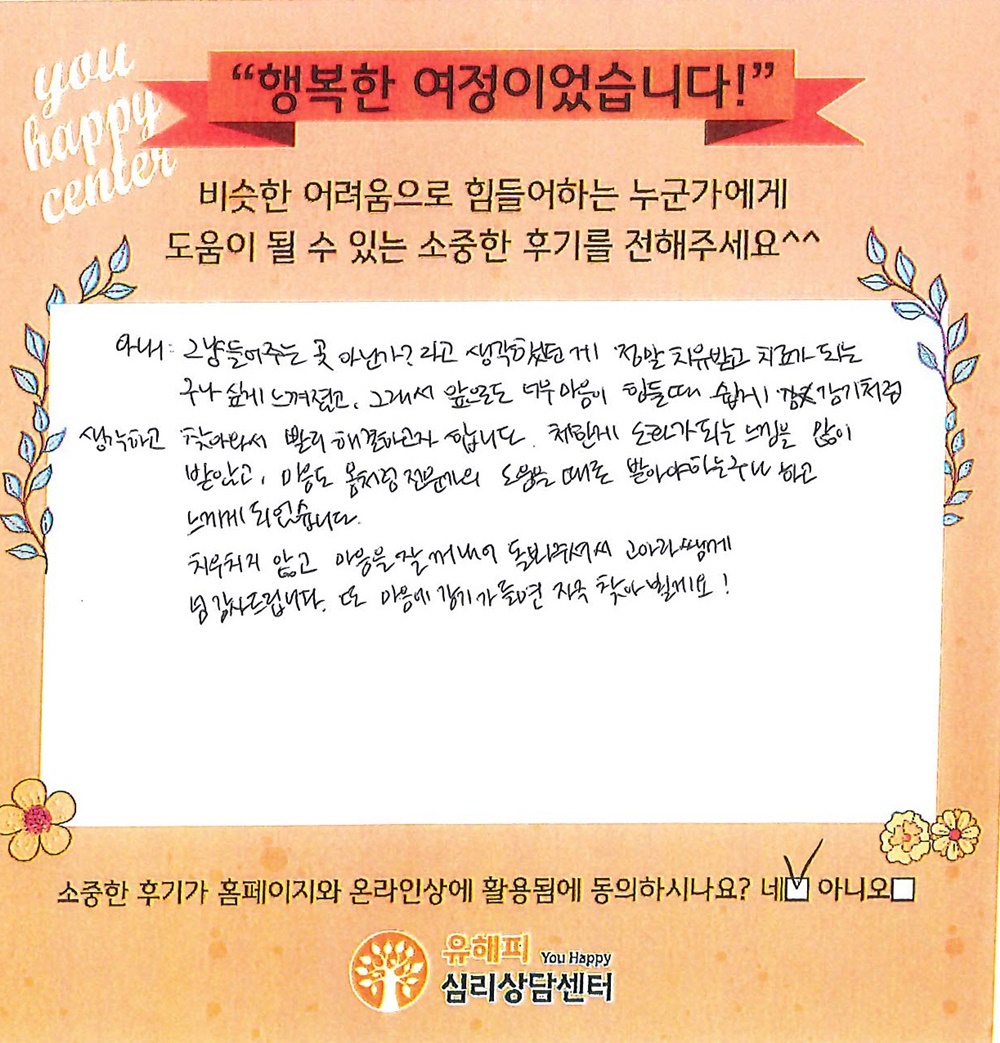 you
happy
center
“행복한 여정이었습니다!”
비슷한 어려움으로 힘들어하는 누군가에게
도움이 될 수 있는 소중한 후기를 전해주세요^^
아내: 그냥 들어주는 곳 아닌가? 라고 생각했던 게 정말 치유받고 치료가 되는
구나 싶게 느껴졌고, 그래서 앞으로도 너무 마음이 힘들때 쉽게 감기처럼
생각하고 찾아와서 빨리 해결하고자 합니다. 제한게 도라가되는 느낌을 많이
받았고, 마음도 몸처럼 전문가의 도움을 때로 받아야하는구나 하고
느끼게 되었습니다.
치우치지 않고 마음을 잘 꺼내어 돌봐주셔서 고아라쌤께
넘 감사드립니다. 또 마음에 감기가 들면 지국 찾아 뵐게요!
소중한 후기가 홈페이지와 온라인상에 활용됨에 동의하시나요? 네 아니오
유해피 You Happy
심리상담센터